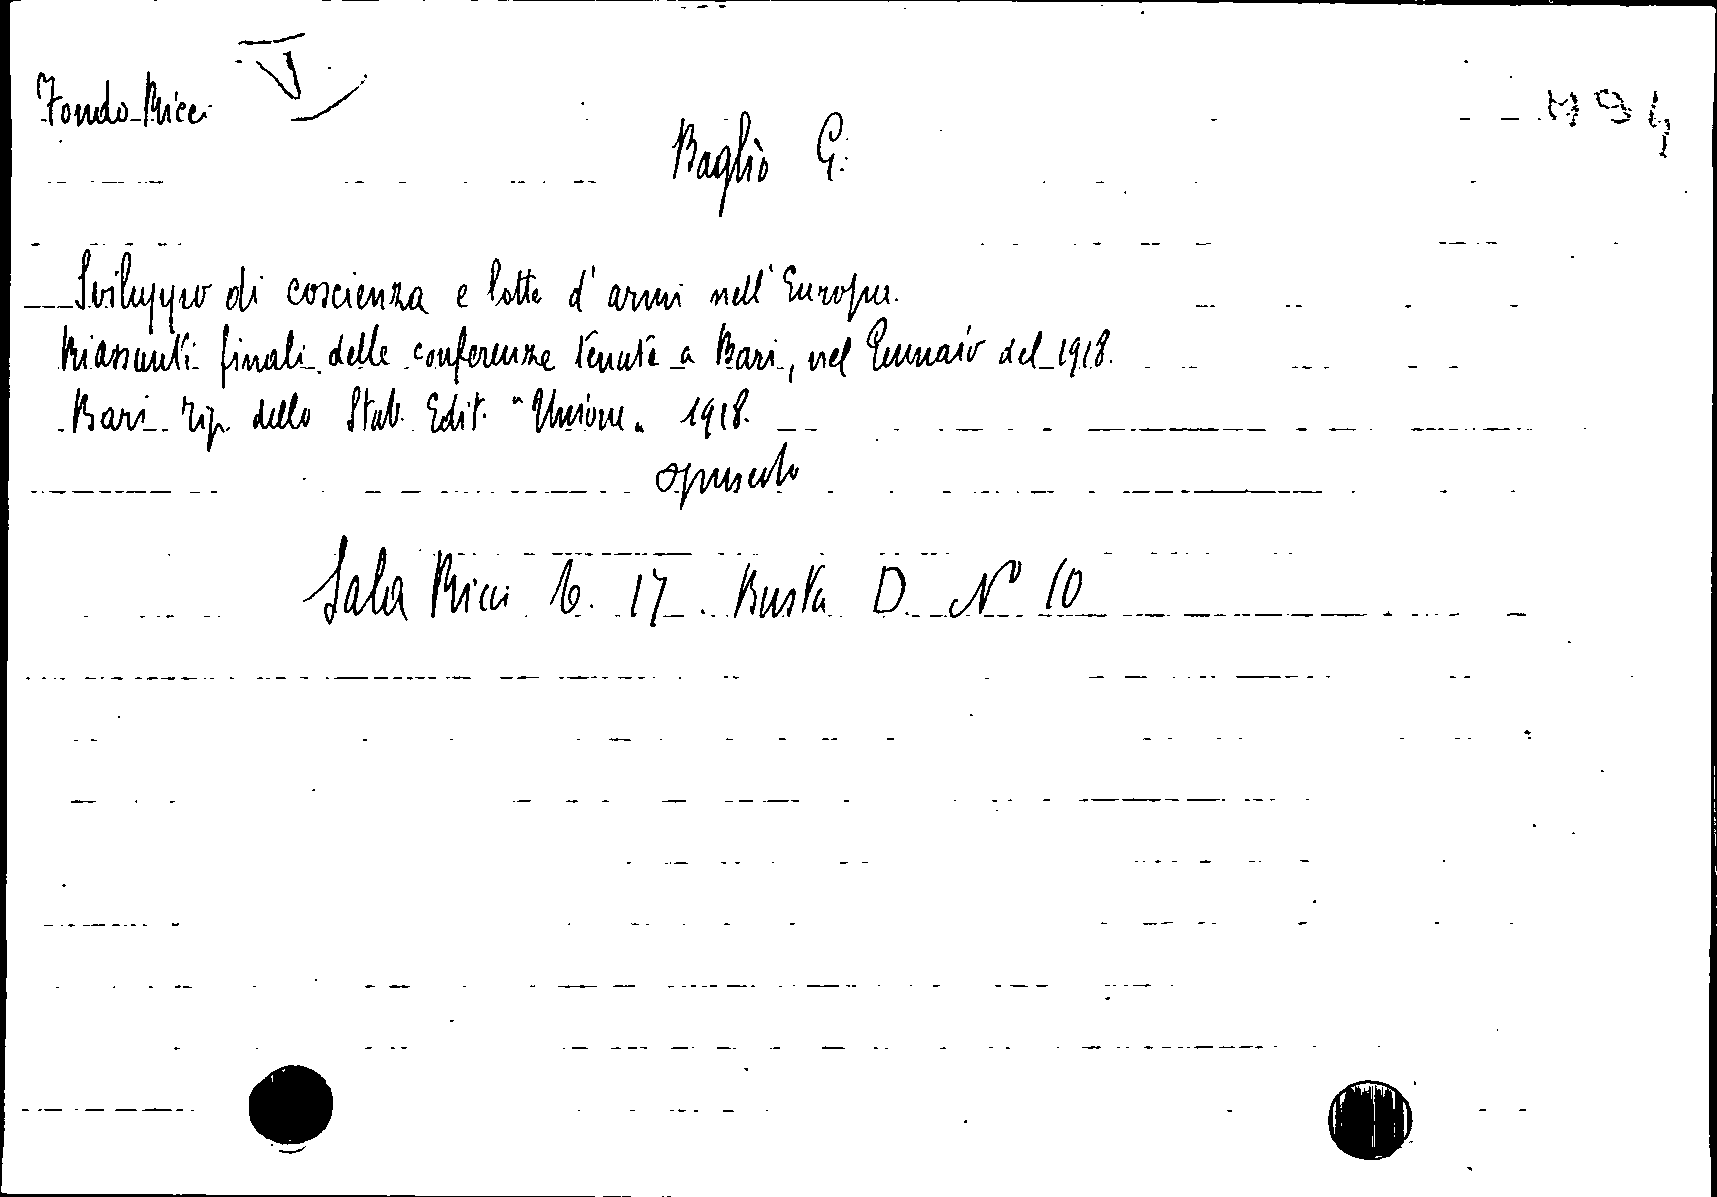 Fondo Ricci V
M 94
Baglio G.
Sviluppo di coscienza e lotte d'armi nell'Europa.
Riassunti finali delle conferenze tenute a Bari, nel Gennaio del 1918.
Bari Tip. dello Stab. Edit. "Unione" 1918.
opuscolo
Sala Ricci 6. 17. Busta D. N° 10